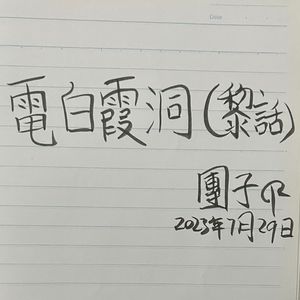 Date
電白霞洞(黎話)
團子
2023年7月29日